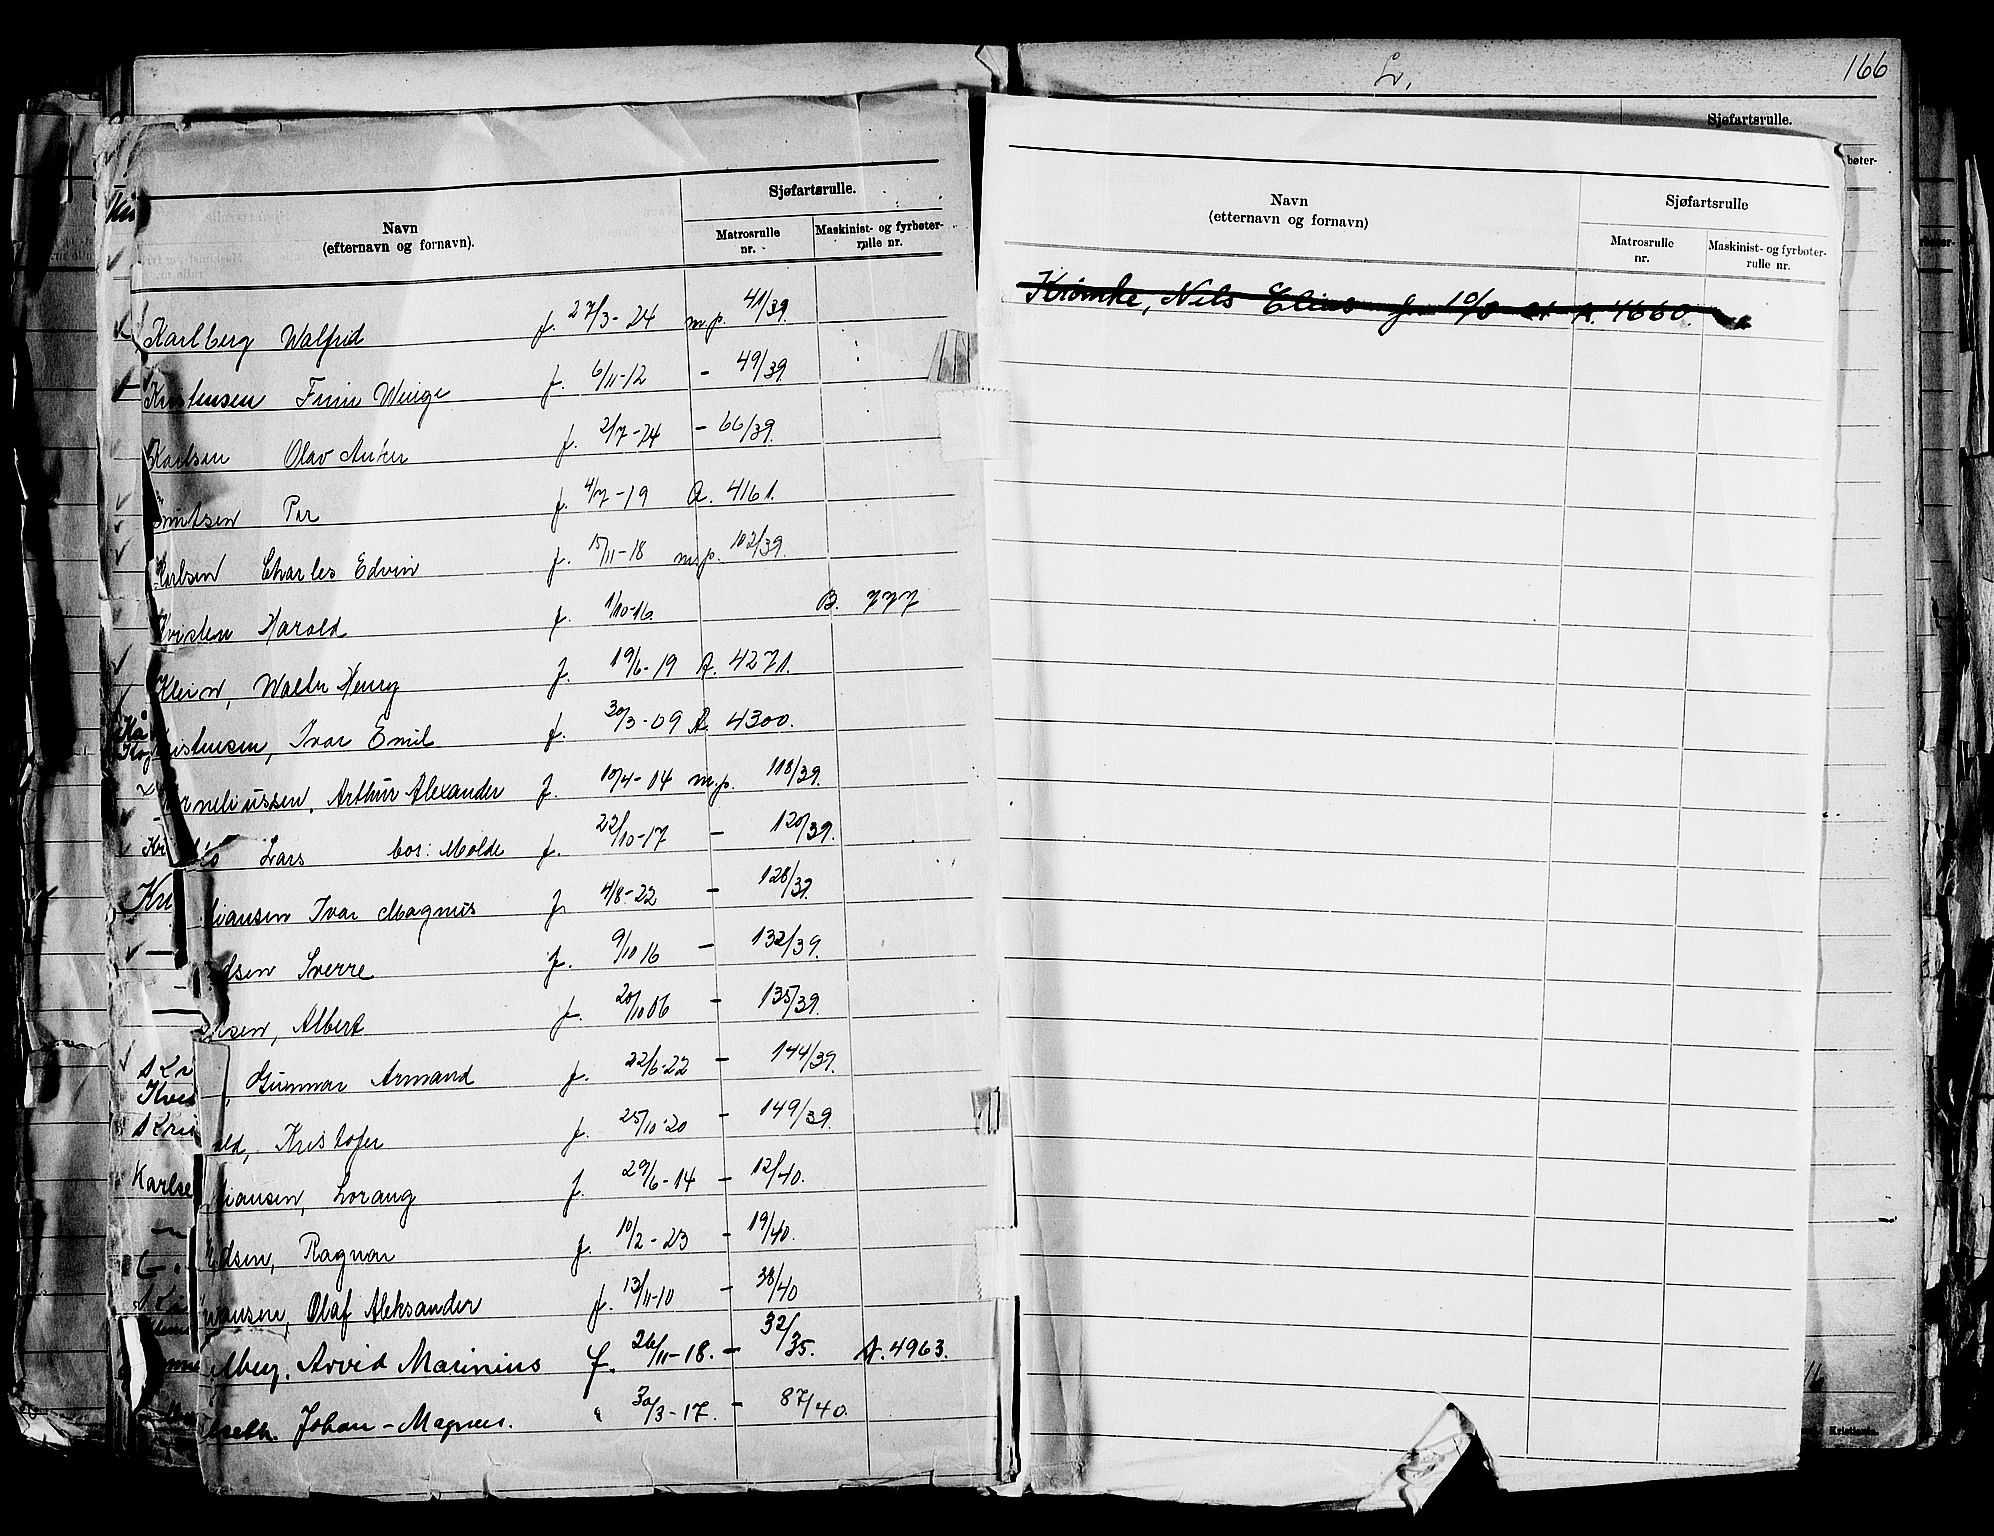 L.
166
Sjøfartsrulle.
Navn
(efternavn og fornavn).
Sjøfartsrulle.
Matrosrulle nr.
Maskinist- og fyrbøter-rulle nr.
Karlberg Walfrid f. 27/3-24 m.p. 41/39.
Kristensen Finn Winge f. 6/11-12 - 49/39
Karlsen Olav Anker f. 2/7-24 - 66/39.
nutsen Per f. 4/7-19 A. 4161.
Karlsen Charles Edvin f. 15/11-18 m.p. 102/39.
Kvisten Harald f. 1/10-16. B. 777
Klein, Walter Henry f. 19/6-19 A. 4271.
istensen, Ivar Emil f. 30/3-09 A. 4300.
rneliussen, Arthur Alexander f. 10/4-04 m.p. 118/39.
Lars bos: Molde f. 22/10-17 - 120/39.
tiansen Ivar Magnus f. 4/8-22 - 128/39.
dsen Sverre f. 9/10 16 - 132/39.
sen, Albert f. 20/10 06 - 135/39.
, Gunnar Armand f. 22/6-22 - 144/39.
ld, Kristofer f. 25/10-20 - 149/39.
iansen, Lorang f. 29/6-14 - 12/40.
dsen, Ragnar f. 10/2-23 - 19/40.
iansen, Olaf Aleksander f. 13/11-10 - 38/40
lberg, Arvid Marinius f. 26/11-18. - 32/35. A. 4963.
seth. Johan-Magnus. " 30/3-17. - 87/40.
Kri
Karlse
Navn
(etternavn og fornavn)
Sjøfartsrulle
Matrosrulle nr.
Maskinist- og fyrbøter-rulle nr.
Nils Elias A. 4660.
Kristiania.